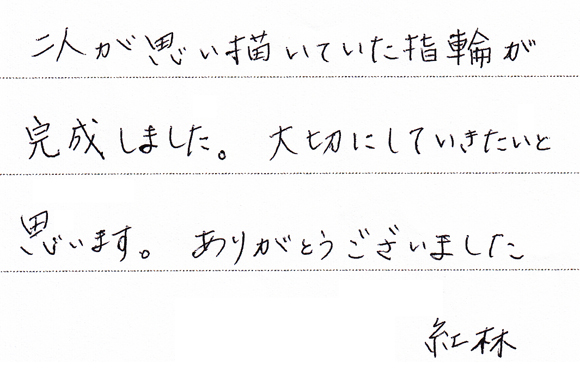 二人が思い描いていた指輪が
完成しました。大切にしていきたいと
思います。ありがとうございました
紅林